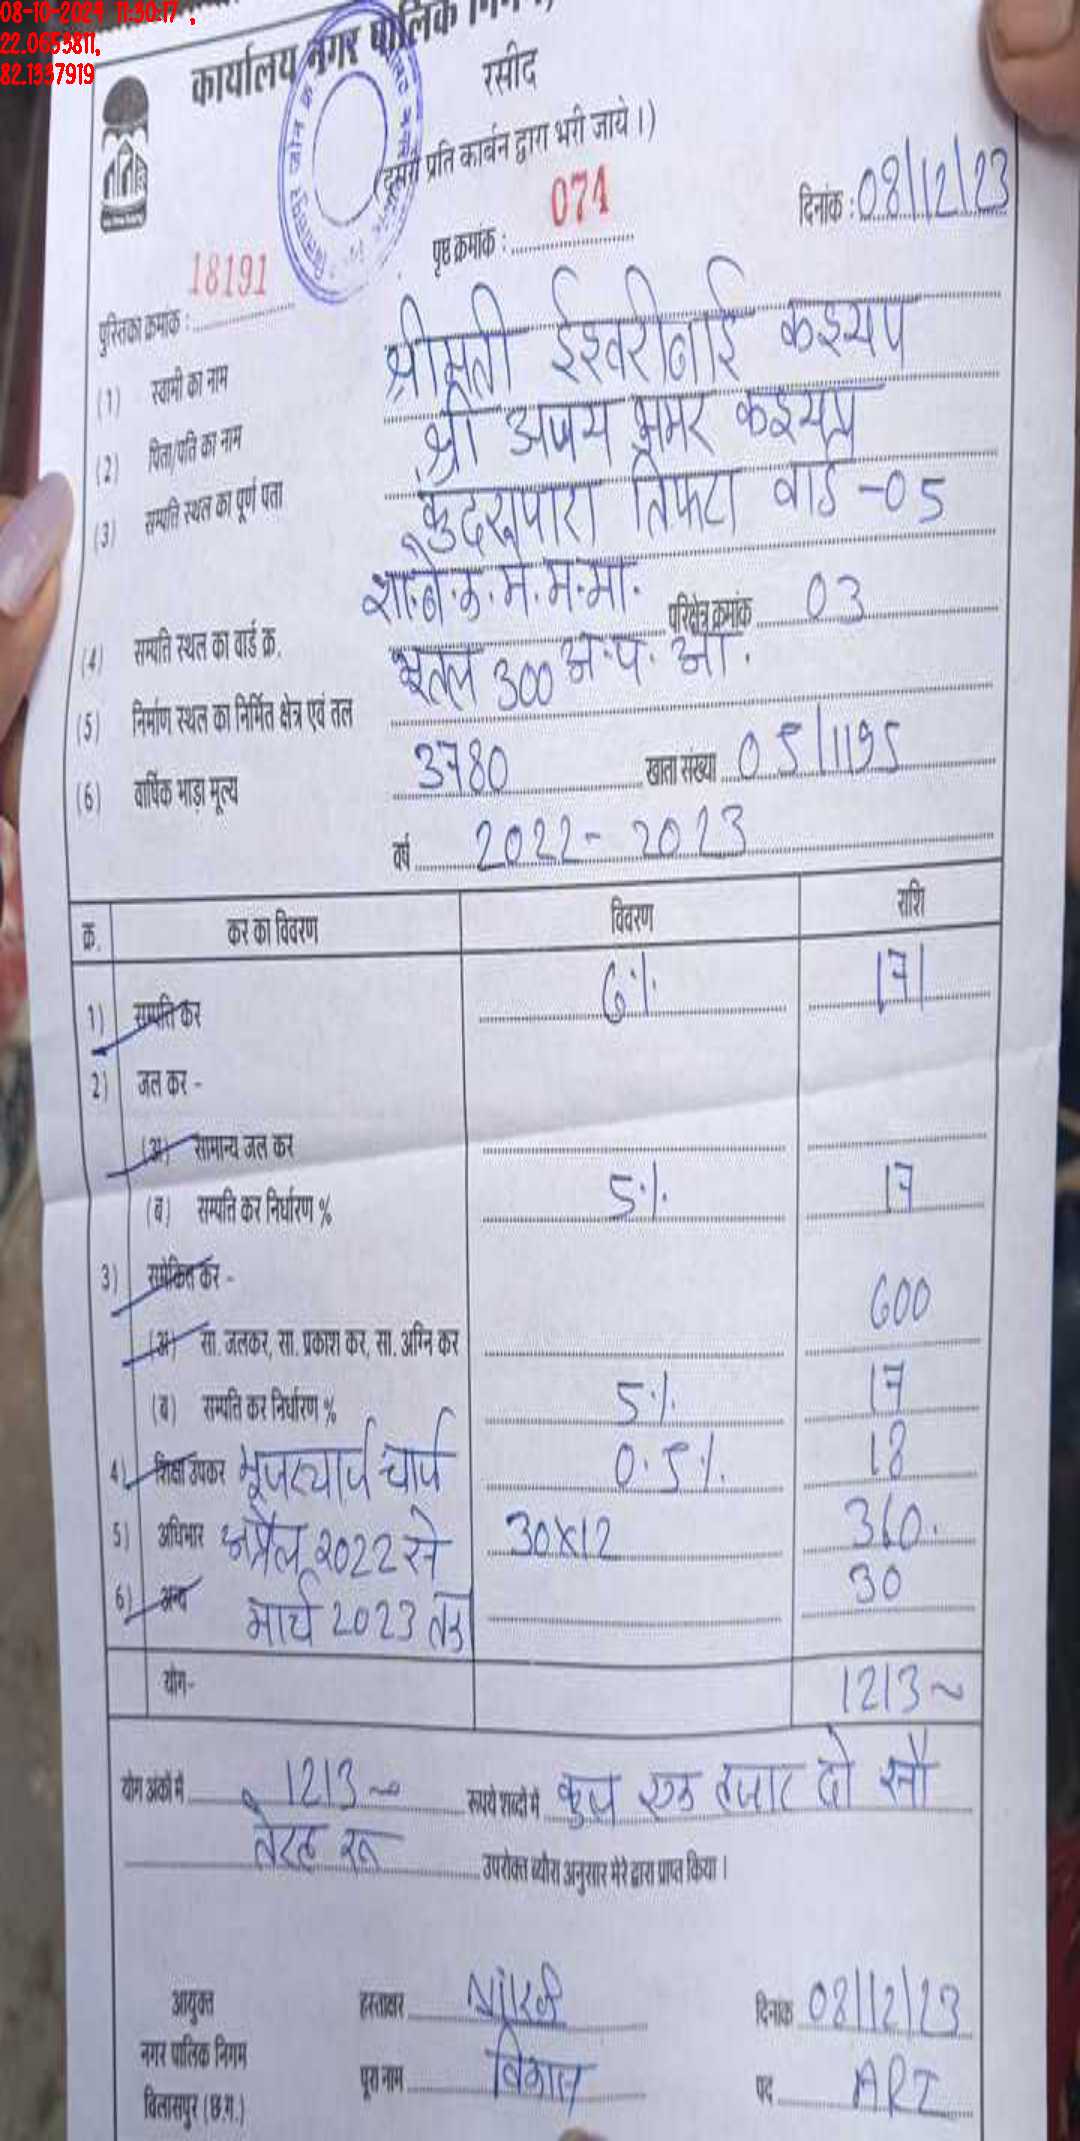 08-10-2024 11:30:17 ,
22.0653811,
82.1337919
कार्यालय नगर पालिक निगम,
रसीद
(दूसरी प्रति कार्बन द्वारा भरी जाये।)
दिनांक : 08/12/23
पृष्ठ क्रमांक : 074
पुस्तिका क्रमांक : 18191
(1) स्वामी का नाम श्रीमती ईश्वरीबाई कश्यप
(2) पिता/पति का नाम श्री अजय कश्यप
(3) सम्पति स्थल का पूर्ण पता कुंदरूपारा तिफरा वार्ड -05
(4) सम्पति स्थल का वार्ड क्र. परिक्षेत्र क्रमांक 03
(5) निर्माण स्थल का निर्मित क्षेत्र एवं तल भूतल 300
(6) वार्षिक भाड़ा मूल्य 3780 खाता संख्या 05/1195
वर्ष 2022- 2023
क्र. कर का विवरण विवरण राशि
1) सम्पति कर 6% 171
2) जल कर -
(अ) सामान्य जल कर
(ब) सम्पति कर निर्धारण % 5% 17
3) समेकित कर - 600
(अ) सा. जलकर, सा. प्रकाश कर, सा. अग्नि कर
(ब) सम्पति कर निर्धारण % 5% 17
4) शिक्षा उपकर चार्ज 0.5% 18
5) अधिभार अप्रैल 2022 से 30x12 360.
6) अन्य मार्च 2023 तक 30
योग- 1213
योग अंकों में 1213 रूपये शब्दों में कुल एक हजार दो सौ
तेरह रू उपरोक्त ब्यौरा अनुसार मेरे द्वारा प्राप्त किया।
आयुक्त हस्ताक्षर दिनांक 08/12/23
नगर पालिक निगम पूरा नाम विकास पद ART
बिलासपुर (छ.ग.)